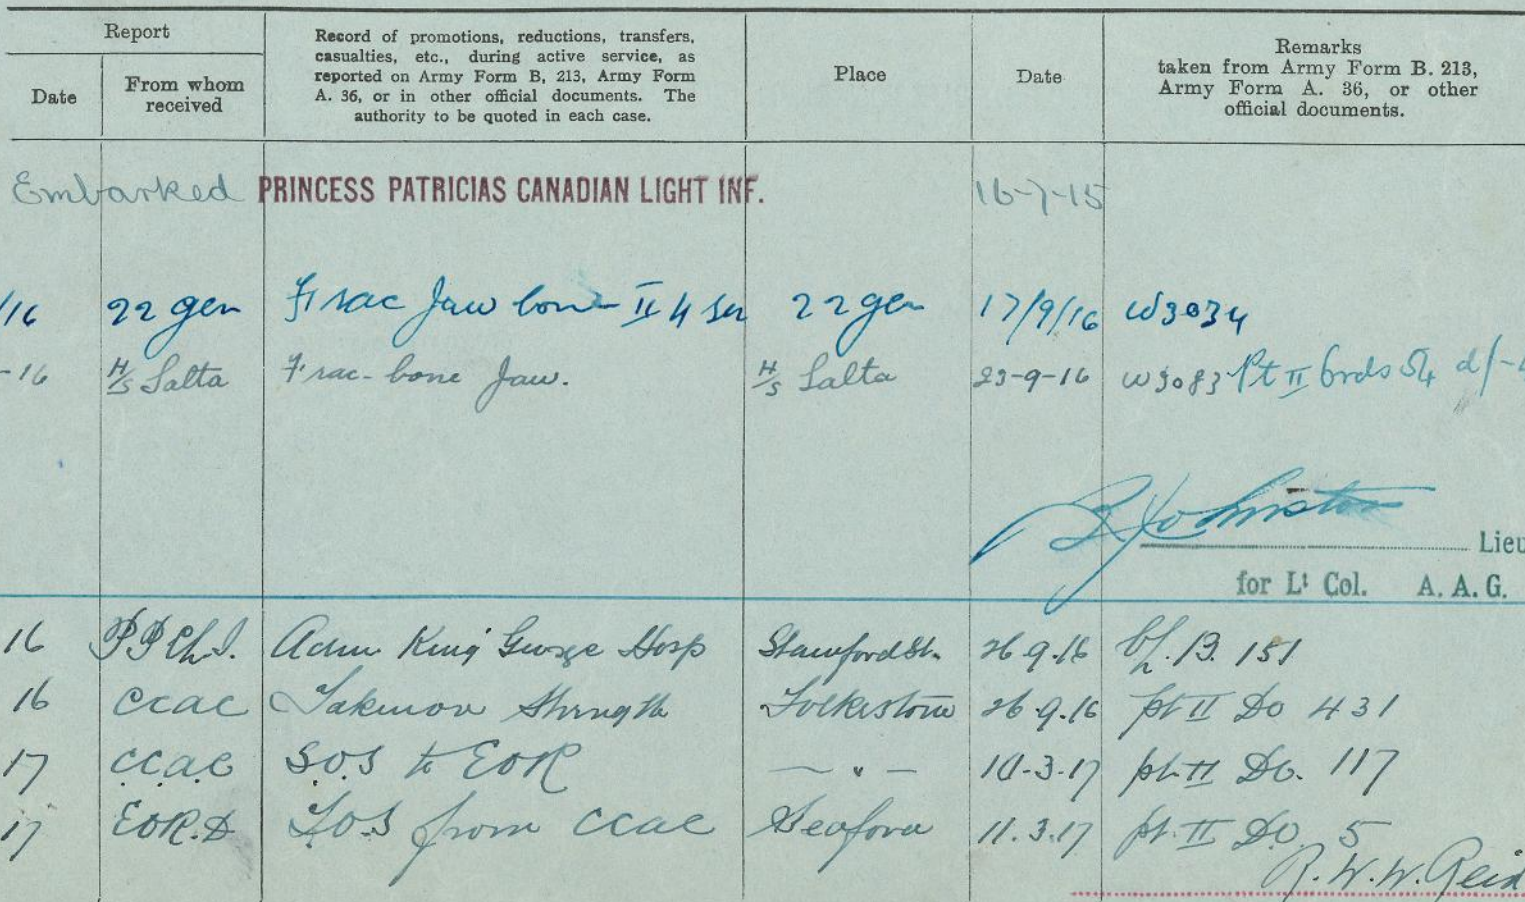 Report
Record of promotions, reductions, transfers,
casualties, etc., during active service, as
reported on Army Form B, 213, Army Form
A. 36, or in other official documents. The
authority to be quoted in each case.
Place
Date
Remarks
taken from Army Form B. 213,
Army Form A. 36, or other
official documents.
Date
From whom
received
Embarked PRINCESS PATRICIAS CANADIAN LIGHT INF. 16-7-15
/16 22 gen Frac Jaw bone II 22 gen 17/9/16 W3034
-16 H/S Salta Frac- bone Jaw. H/S Salta 23-9-16 W3083 Pt II Ords 54 d/-
Johnston Lieu
for Lt Col. A. A. G.
16 Adm King George Hosp Stamford St. 26.9.16 B. 151
16 CCAC Taken on Strength Folkestone 26.9.16 pt II DO 431
17 C.C.A.C S.O.S to EOR — " — 10-3-17 pt. II DO. 117
17 EOR.D T.O.S from CCAC Seaford 11.3.17 pt. II DO 5
R.W.W. Reid